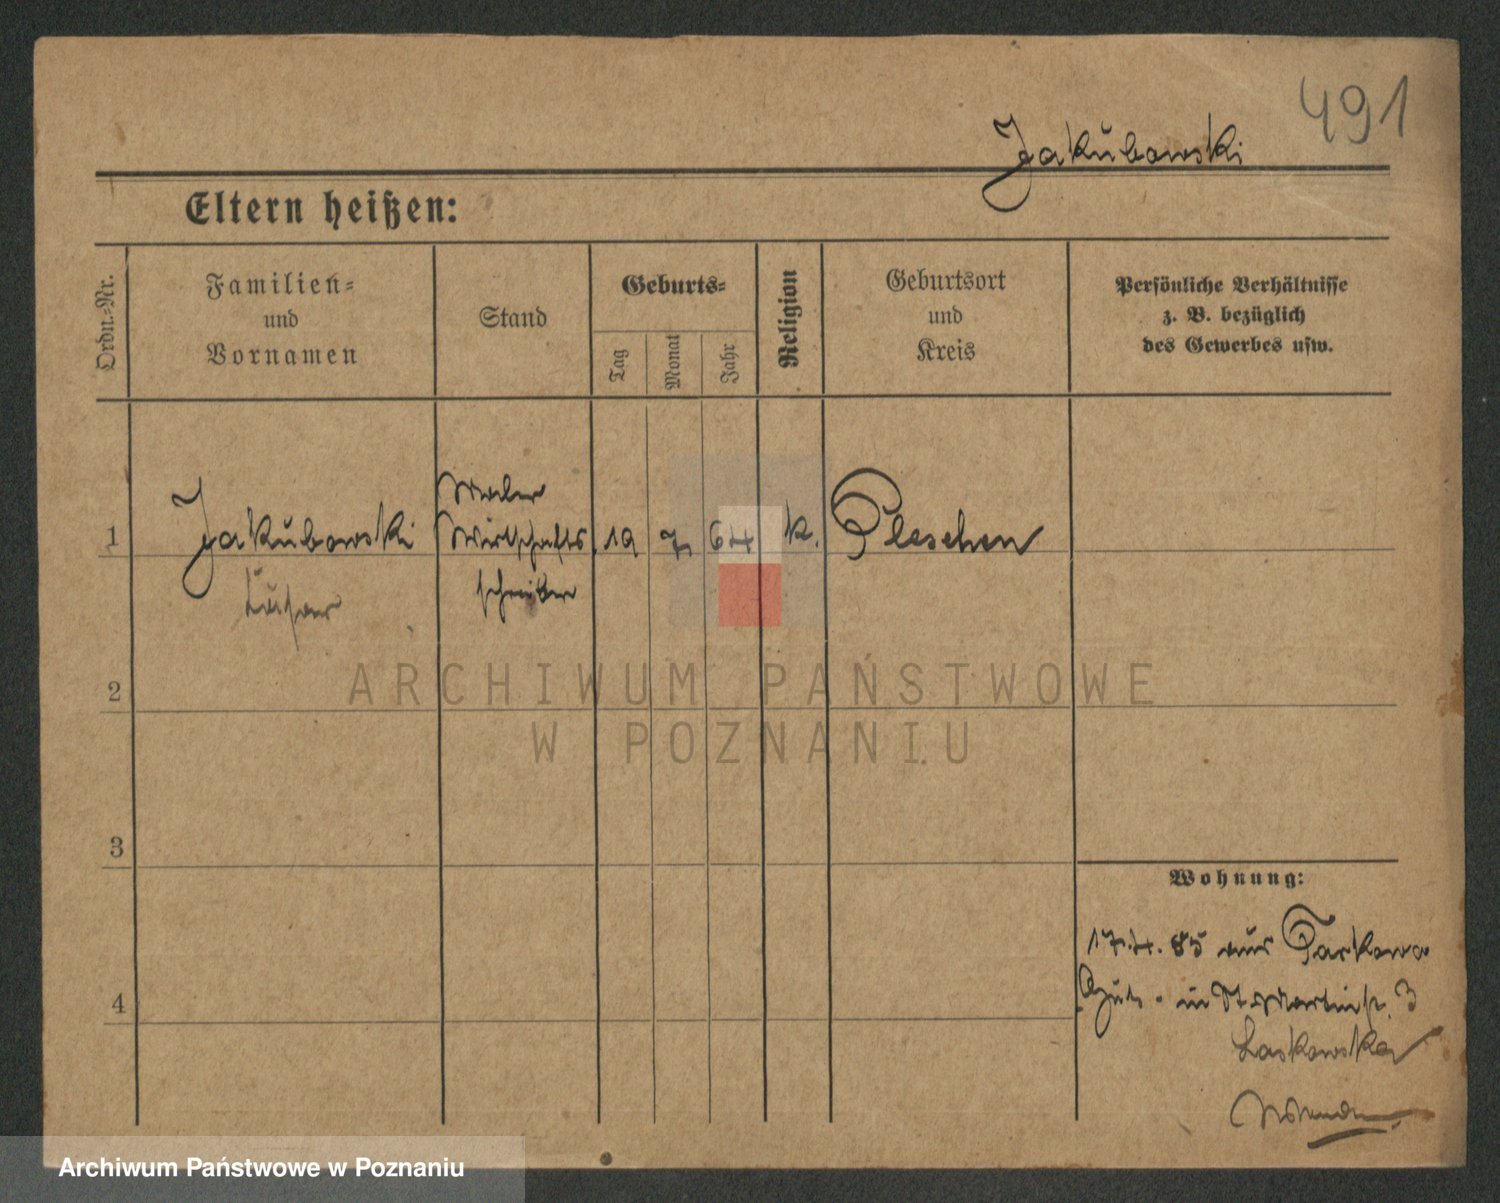 491
Jakubowski
Eltern heißen:
Ordn.-Nr.
Familien-
und
Vornamen
Stand
Geburts-
Tag
Monat
Jahr
Religion
Geburtsort
und
Kreis
Persönliche Verhältnisse
z. B. bezüglich
des Gewerbes usw.
1
Jakubowski
Wirtschafts
schreiber
19
7
64
k.
Pleschen
2
ARCHIWUM PAŃSTWOWE
W POZNANIU
3
Wohnung:
17.4.85 aus Tarkowo
in St Martinstr. 3
Laskowska
4
Archiwum Państwowe w Poznaniu